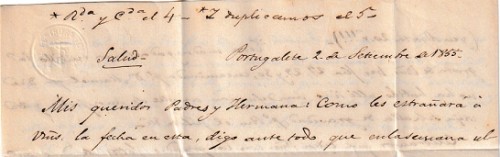 * Rda y Cda el 4 - *I duplicamos el 5 -
Salud - Portugalete 2 de Setiembre de 1885
Mis queridos Padres y Hermana: Como les estrañará á
Vms. la fecha en esta, digo ante todo, que en la semana el